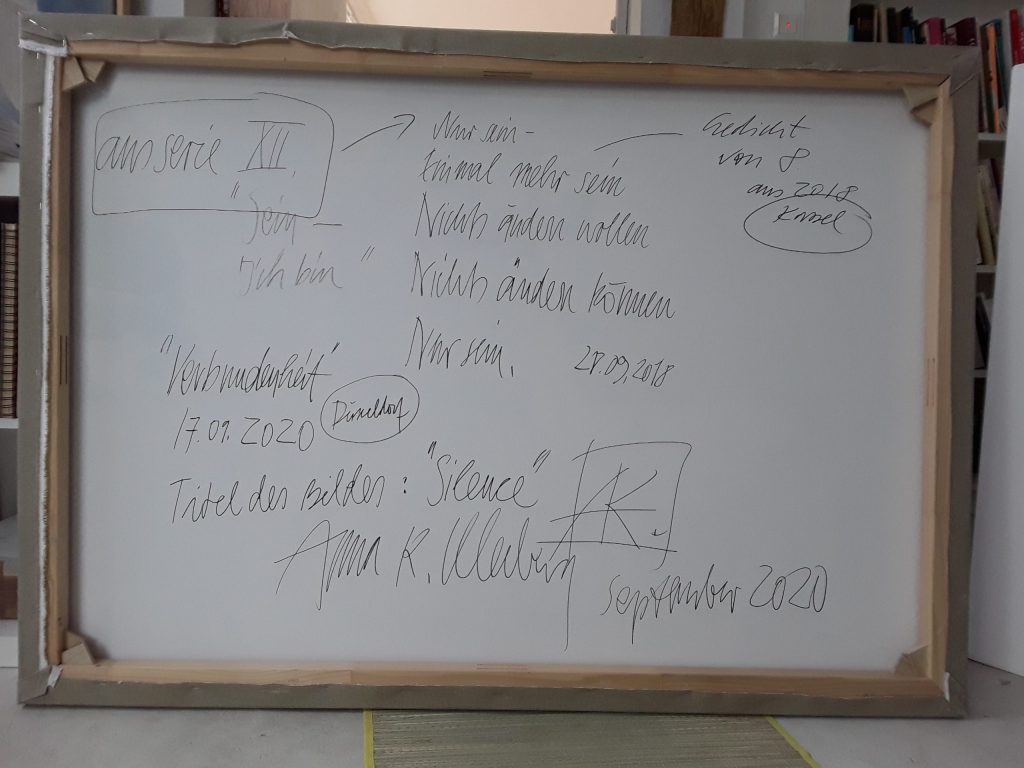 aus serie XII.
"Sein —
Ich bin"
Nur sein –
Einmal mehr sein
Nichts änden wollen
Nichts änden können
Nur sein.
28.09.2018
Gedicht
von 8
aus 2018
Kassel
"Verbundenheit"
17.09.2020
Düsseldorf
Titel des Bildes: "Silence"
AK.
Anna K.
September 2020